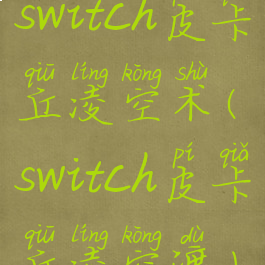 switch皮卡
qiū líng kōng shù
丘凌空术(
pí qiǎ
switch皮卡
qiū líng kōng dù
丘凌空渡)